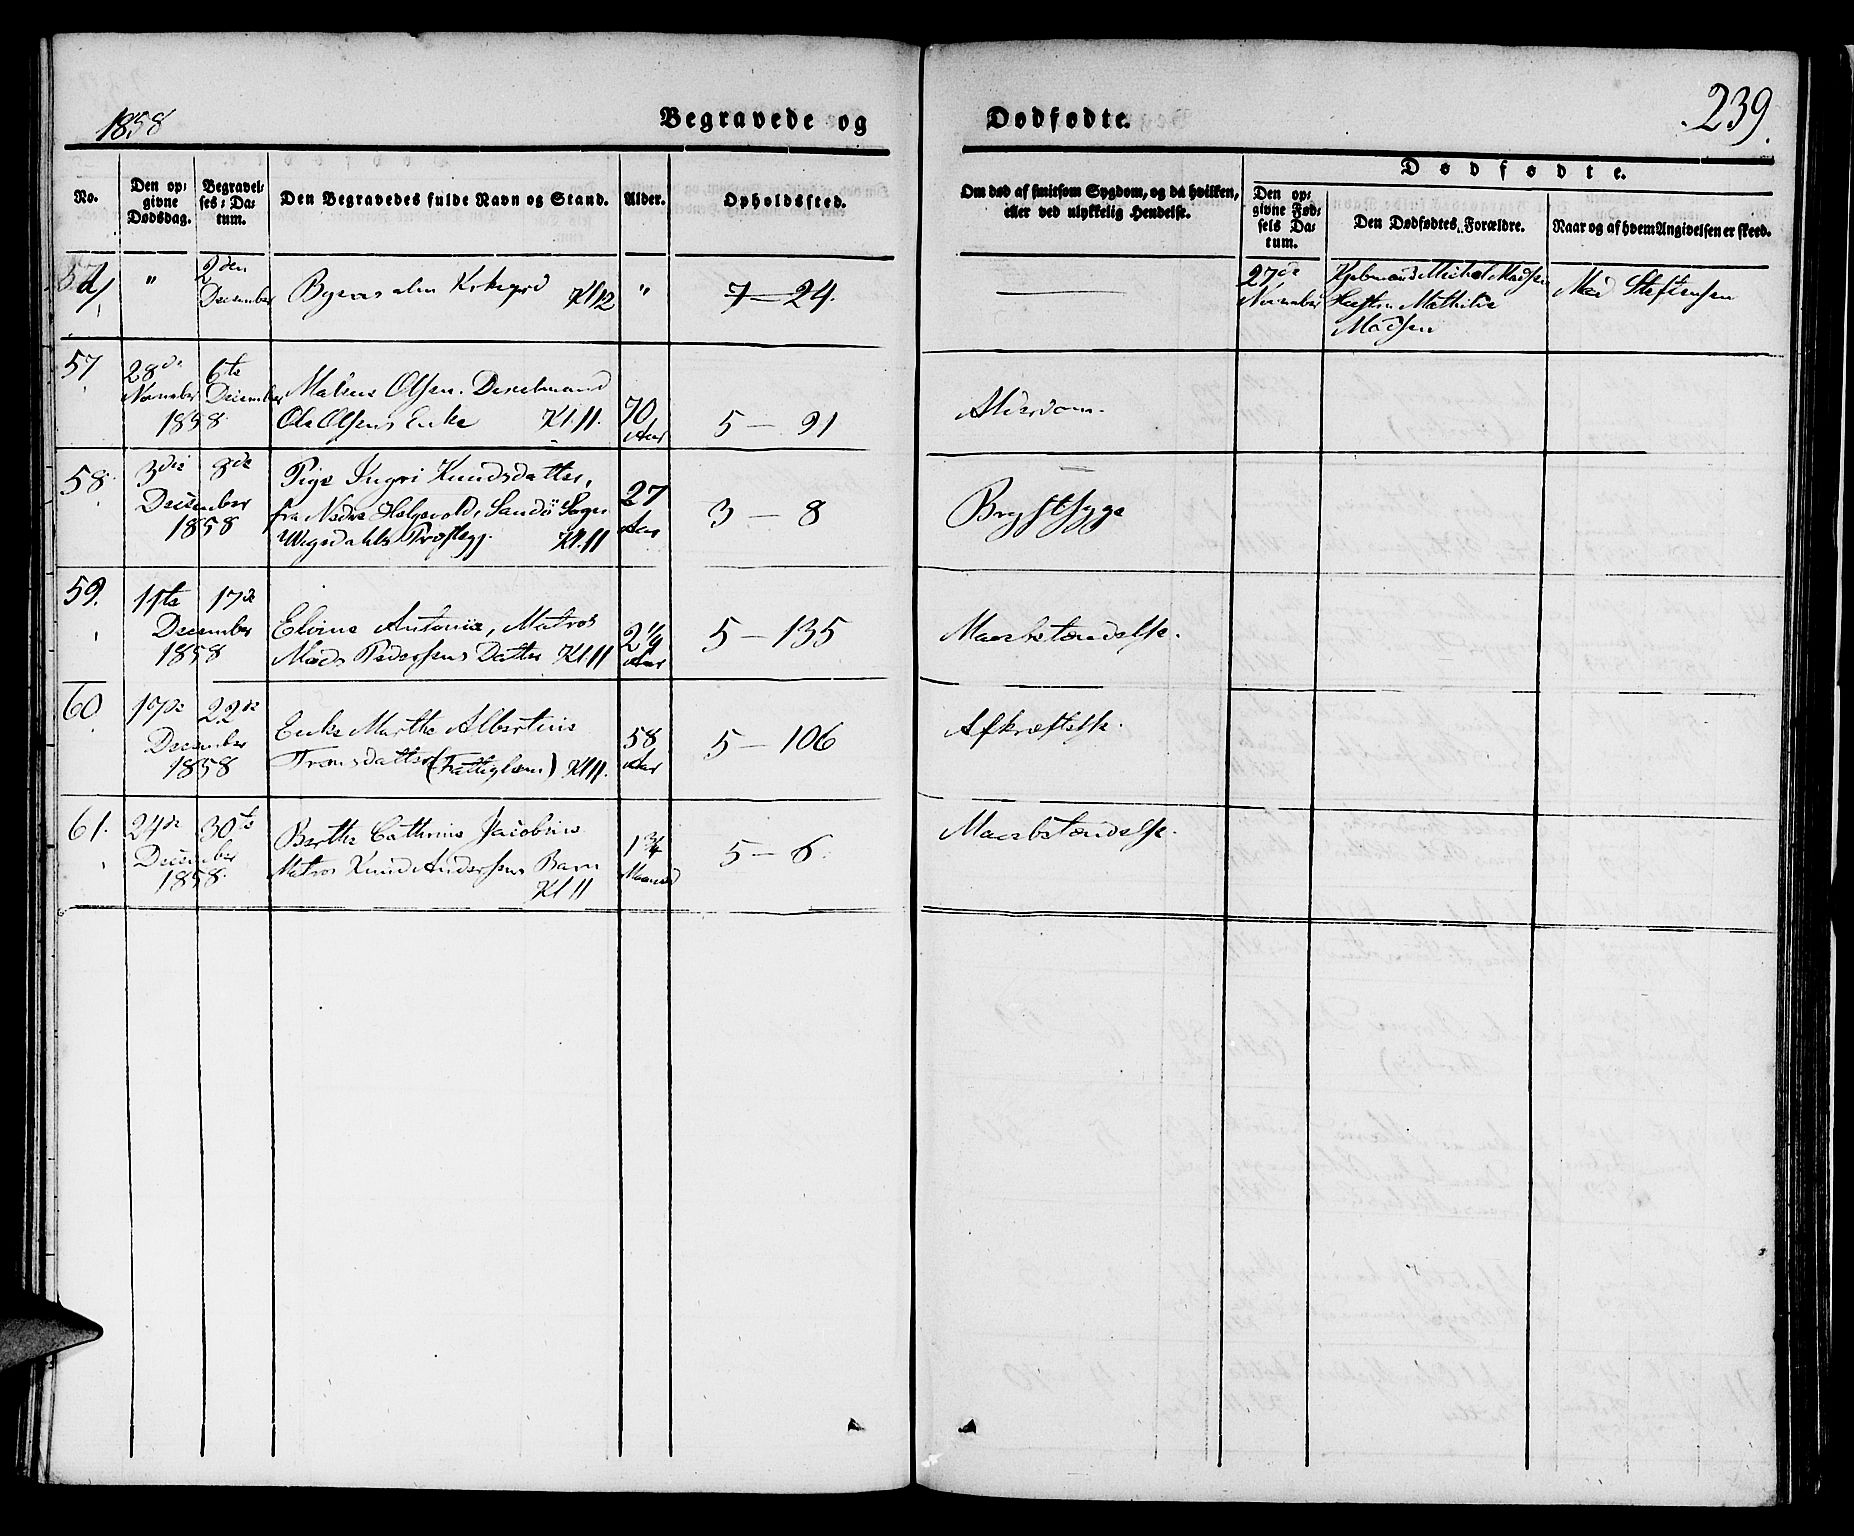 1858
Begravede og
Dødfødte.
239.
No.
Den op-
givne
Dødsdag.
Begravel-
ses-Da-
tum.
Den Begravedes fulde Navn og Stand.
Alder.
Opholdssted.
Om død af smitsom Sygdom, og da hvilken,
eller ved ulykkelig Hendelse.
Dødfødte.
Den op-
givne Fød-
sels Da-
tum.
Den Dødfødtes Forældre.
Naar og af hvem Angivelsen er skeed.
"
2den
December
Kl 12
"
7 — 24.
27de
November
Kjøbmand Michal Madsen
Hustru Mathilde
Madsen
Mad Steffensen
57
28de
November
1858
6te
December
Malene Olsen.
Ole Olsens Enke Kl. 11.
70
Aar
5 — 91
Alderdom.
58.
3die
8de
December
1858
Pige Ingri Knudsdatter,
fra Nedre Helgevold, Sandø Sogn
Kl. 11
27
Aar
3 — 8
Brystsyge
59.
11te
17de
December
1858
Elvine Antonie, Matros
Mads Pedersens Datter Kl 11
2 1/9
Aar
5 — 135
Maorbstændelse.
60
17de
22de
December
1858
Enke Marthe Albertine
Tronsdatter (Fattiglem) Kl 11.
58
Aar
5 — 106
Afkræftelse.
61.
24de
30te
December
1858
Berthe Cathrine Jacobine
Matros Knud Anderssens Barn
Kl 11
1 3/4
Maaned
5 — 6.